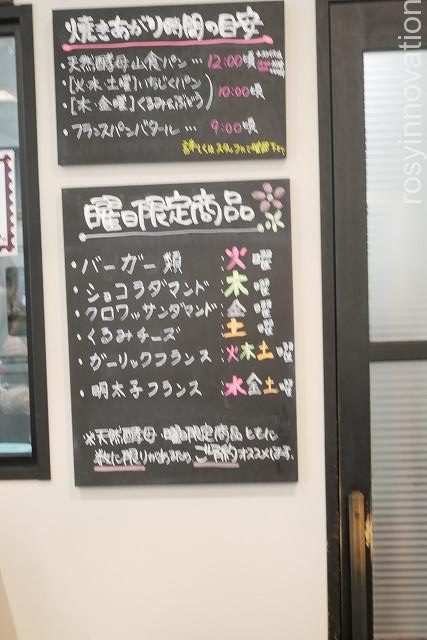 焼きあがり時間の目安
・天然酵母山食パン … 12:00頃
・[火・水・土曜]いちじくパン
・[木・金曜]くるみ&ぶどう
10:00頃
・フランスパンバタール … 9:00頃
詳しくはスタッフにご確認下さい
曜日限定商品
・バーガー類 :火曜
・ショコラダマンド :木曜
・クロワッサンダマンド :金曜
・くるみチーズ :土曜
・ガーリックフランス :火木土曜
・明太子フランス :水金土曜
※天然酵母・曜日限定商品ともに
数に限りがあるため、ご予約オススメします。
rosyinnovation